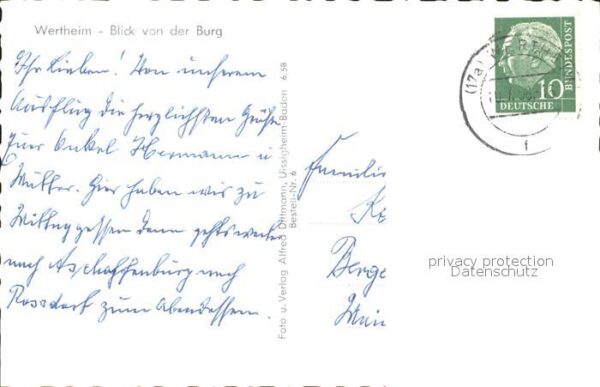 Wertheim - Blick von der Burg
Ihr Lieben! Von unserem
Ausflug die herzlichsten Grüße
Euer Onkel Hermann u
Mutter. Hier haben wir zu
Mittag gegessen dann gehts weiter
nach Aschaffenburg nach
Rossdorf zum Abendessen.
Foto u. Verlag Alfred Dittmann, Uissigheim-Baden 6.58
Bestell-Nr. 6
Familie
Berge
Main
(17a) WERTH
f
10
DEUTSCHE
BUNDESPOST
privacy protection
Datenschutz